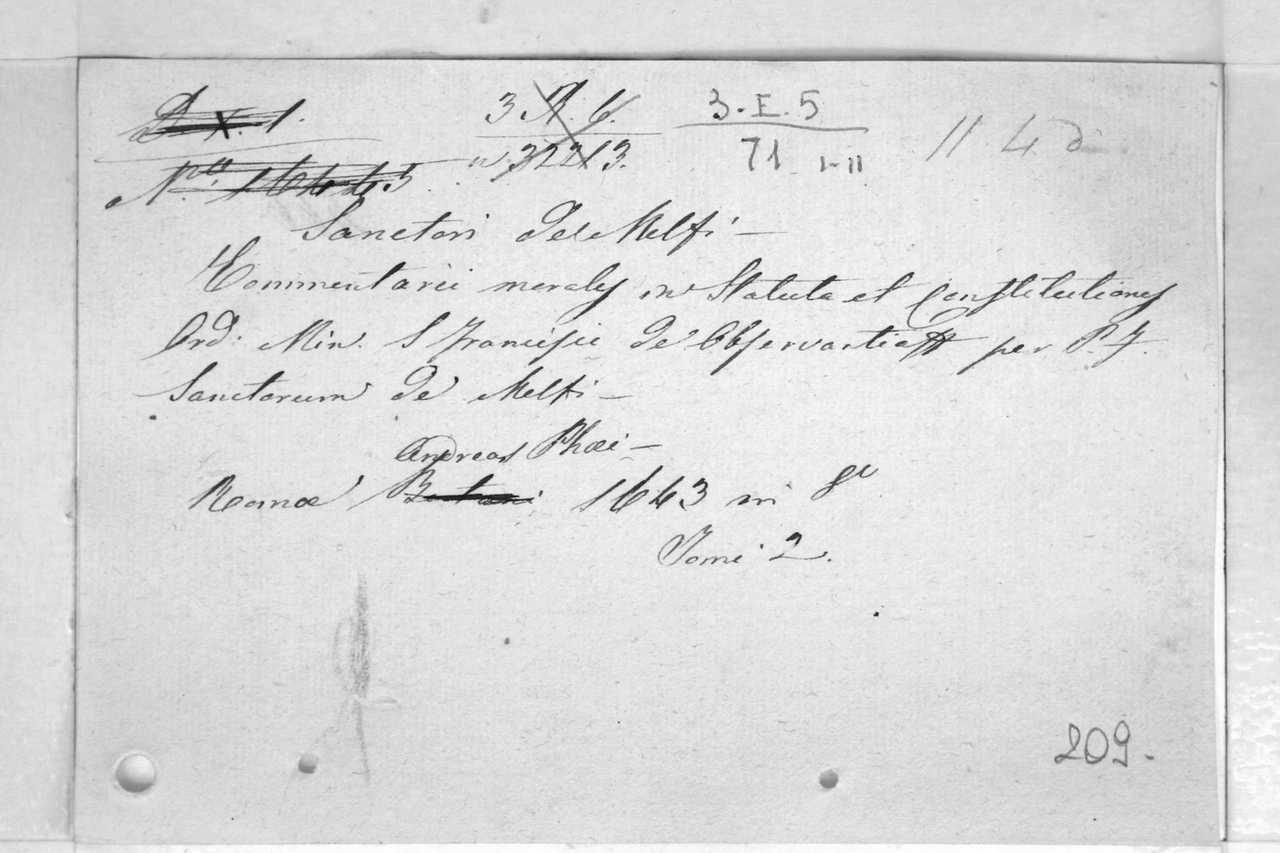 3. E. 5
71 I-II
209.
Sanctori de Melfi –
Commentarii morales in Statuta et Constitutiones
Ord: Min: S Francisci de Observantia per P. F.
Sanctorum de Melfi –
Andreas Phæi –
Romæ 1643 in 8º
Tomi 2.